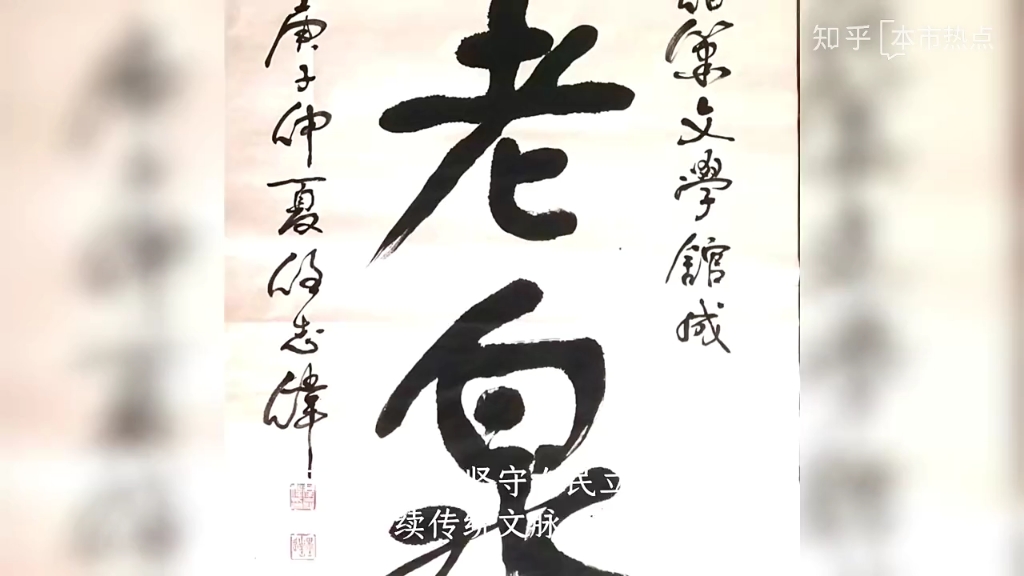 文學館成
老泉
庚子仲夏
志偉
知乎 本市热点
坚守 民立
续传统文脉